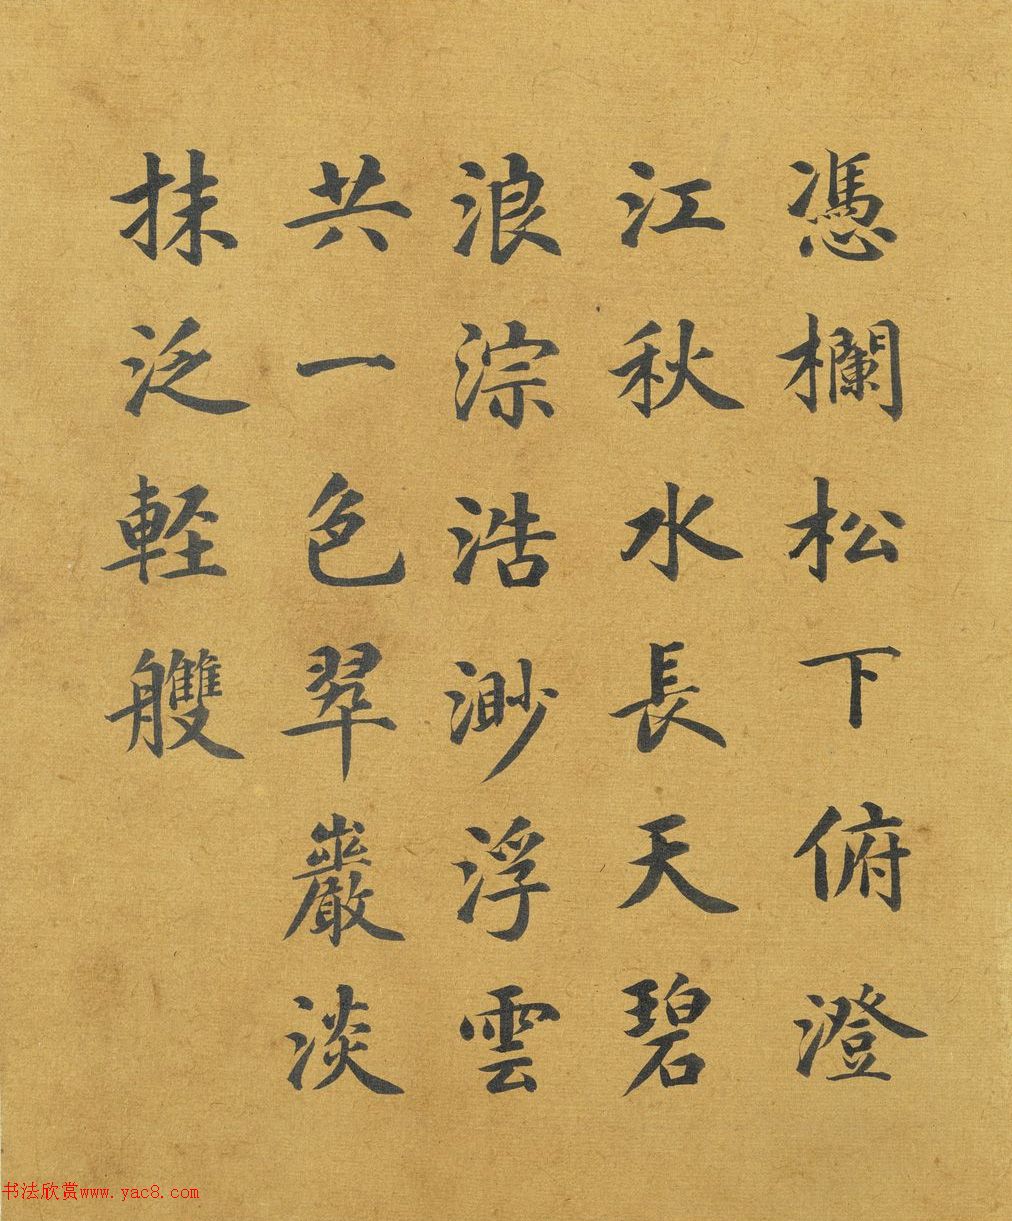 憑欄松下俯澄
江秋水長天碧
浪淙浩渺浮雲
共一色翠巖淡
抹泛輕艭
书法欣赏www.yac8.com